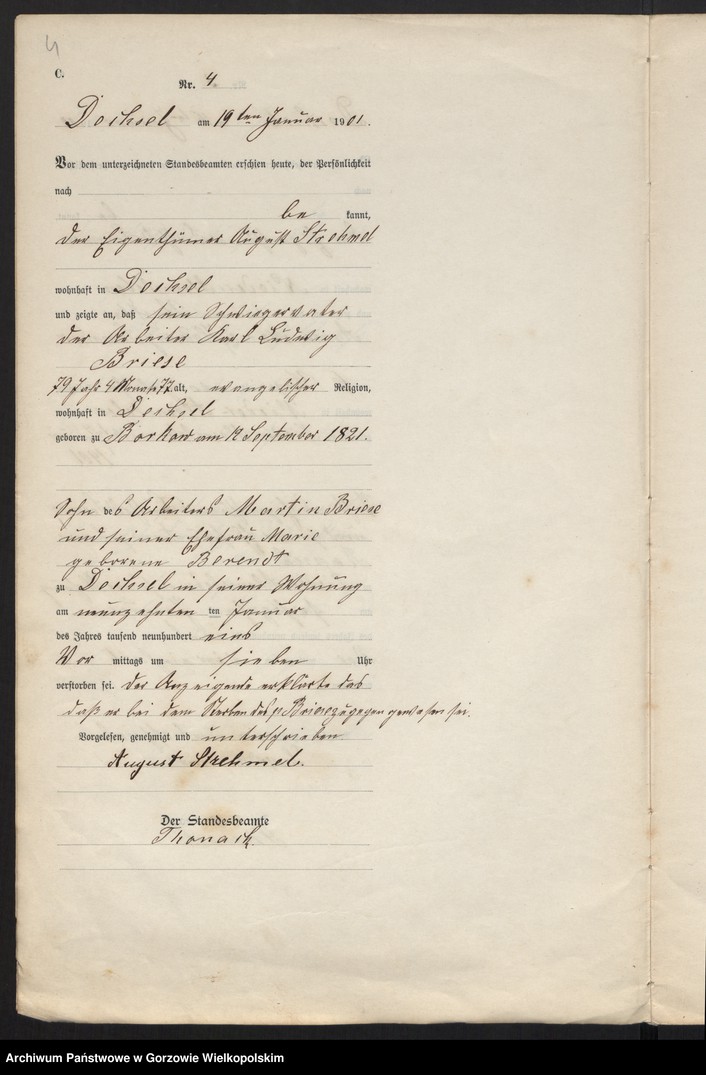 4
C.
Nr. 4
Dechsel am 19ten Januar 1901.
Vor dem unterzeichneten Standesbeamten erschien heute, der Persönlichkeit
nach
be kannt,
der Eigenthümer August Strehmel
wohnhaft in Dechsel
und zeigte an, daß sein Schwiegervater
der Arbeiter Karl Ludwig
Briese
79 Jahr 4 Monate 7 T. alt, evangelischer Religion,
wohnhaft in Dechsel
geboren zu Borkow am 12 September 1821.
Sohn des Arbeiters Martin Briese
und seiner Ehefrau Marie
geborene Berendt
zu Dechsel in seiner Wohnung
am neunzehnten ten Januar
des Jahres tausend neunhundert eins
Vor mittags um sieben Uhr
verstorben sei. Der Anzeigende erklärte das
daß er bei dem Sterben des p Briese zugegen gewesen sei.
Vorgelesen, genehmigt und unterschrieben
August Strehmel.
Der Standesbeamte
Thonack
Archiwum Państwowe w Gorzowie Wielkopolskim